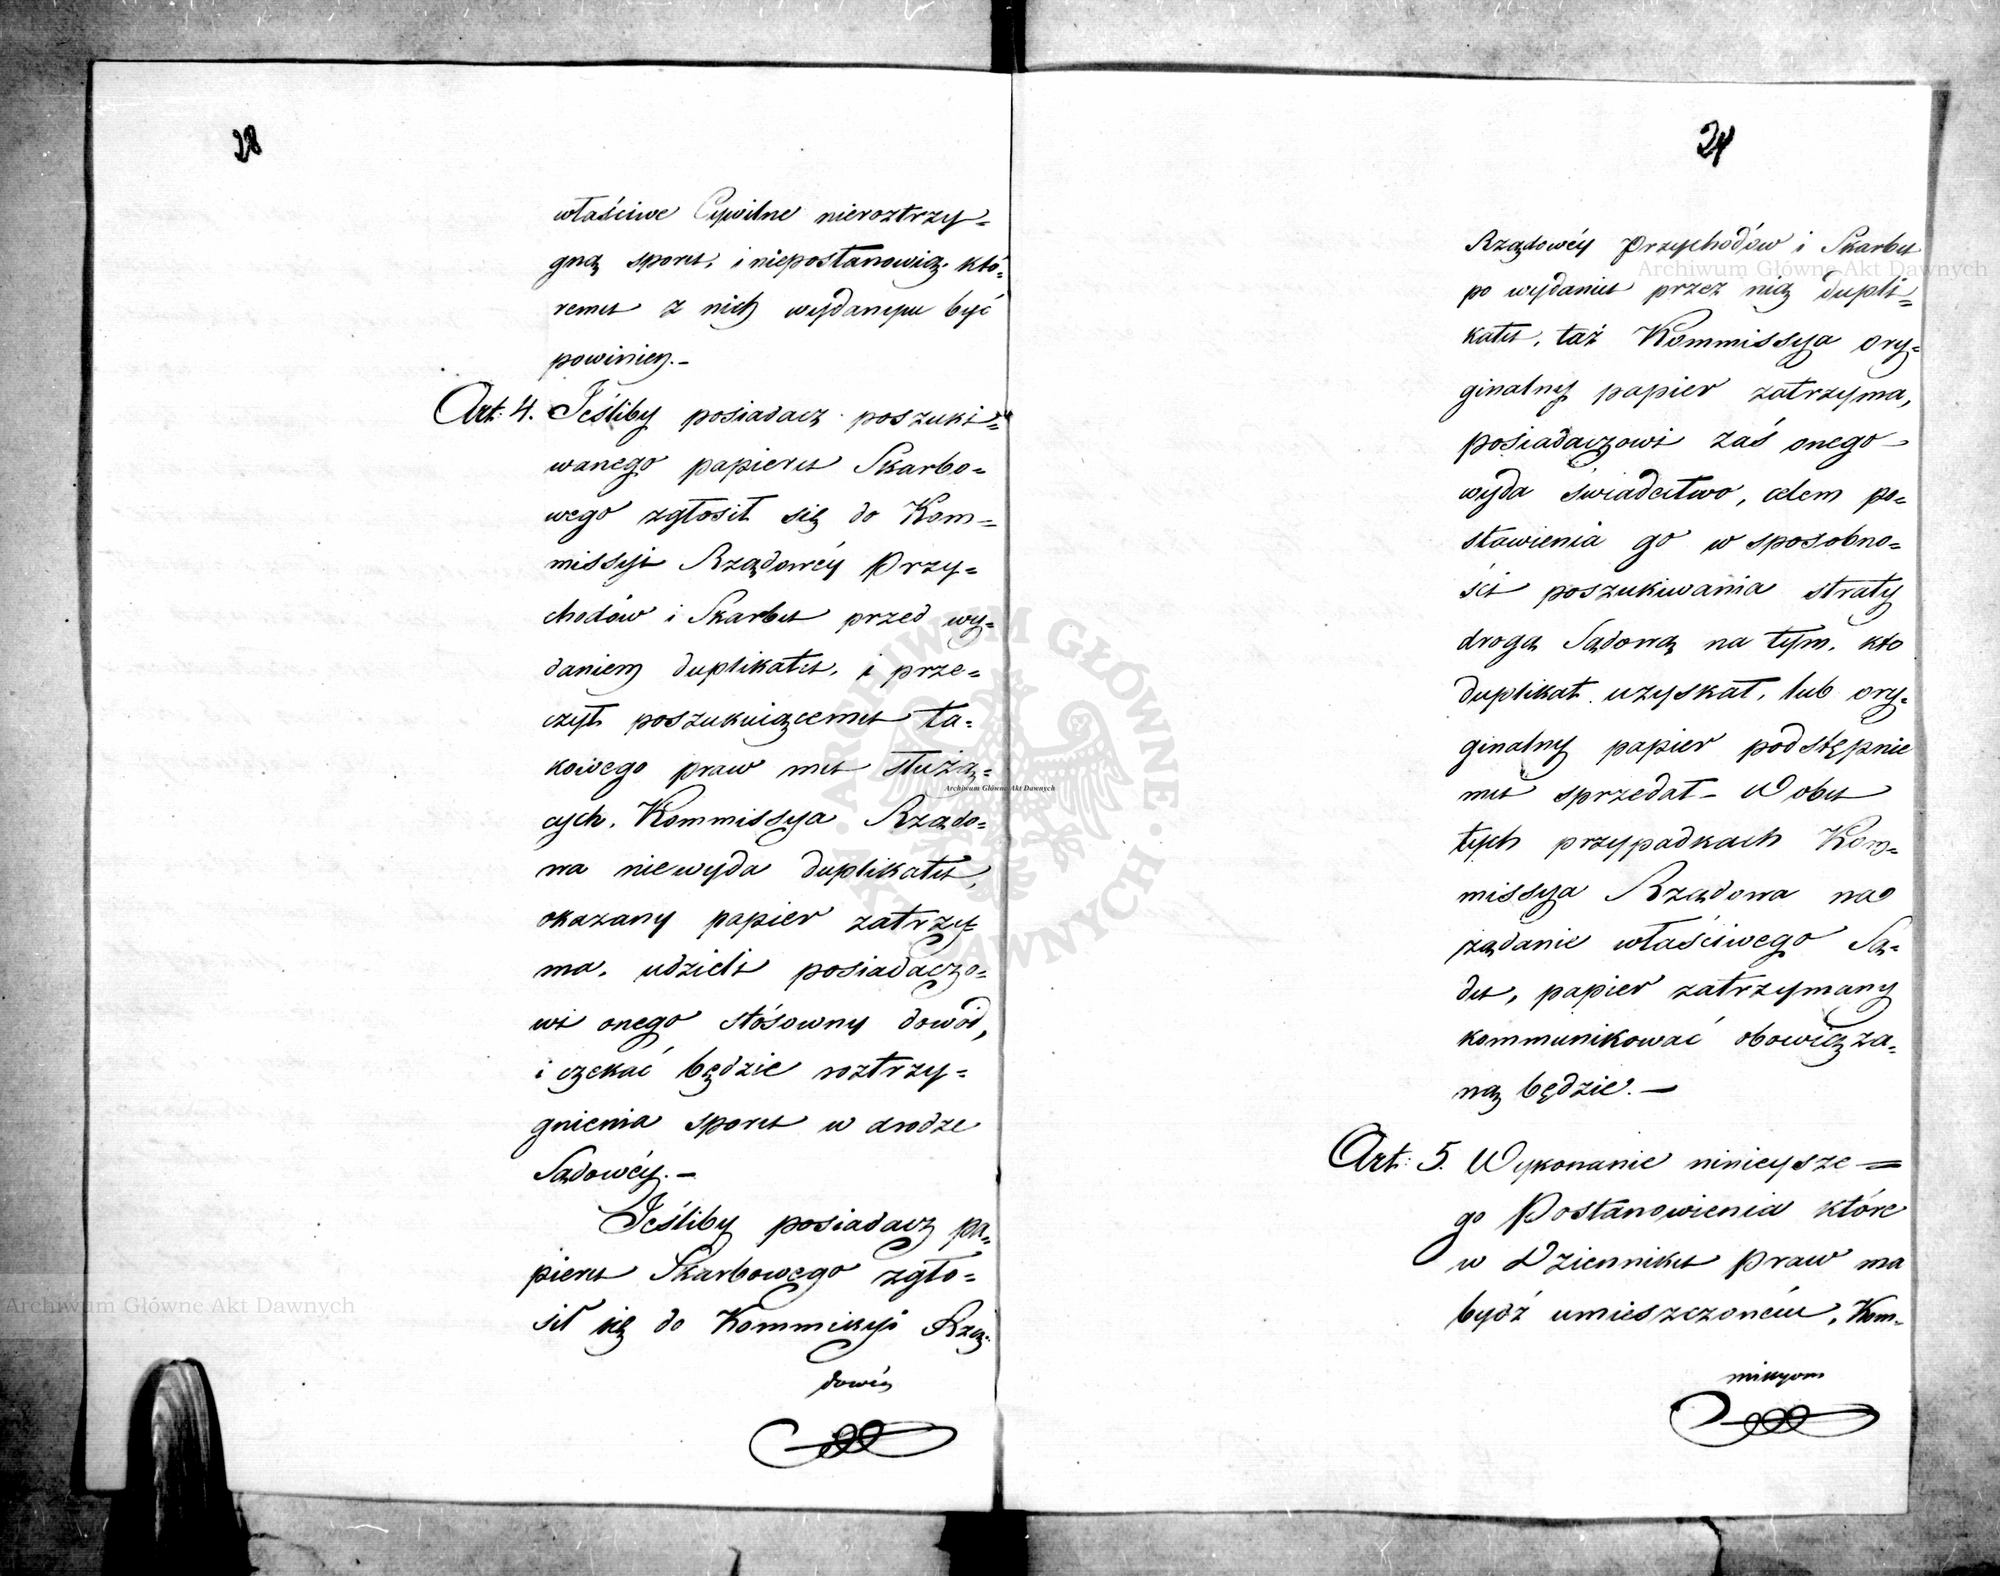 28
właściwe Cywilne nieroztrzy=
gną sporu, i niepostanowią, któ=
remu z nich wydanym być
powinien.—
Art: 4. Jeśliby posiadacz poszuki=
wanego papieru Skarbo=
wego zgłosił się do Kom=
missyi Rządowéy Przy=
chodów i Skarbu przed wy=
daniem duplikatu, i prze=
czył poszukuiącemu ta=
kowego praw mu służą=
cych, Kommissya Rządo=
wa niewyda duplikatu,
okazany papier zatrzy=
ma, udzieli posiadaczo=
wi onego stósowny dowód,
i czekać będzie roztrzy=
gnienia sporu w drodze
Sądowéy.—
Jeśliby posiadacz pa=
pieru Skarbowego zgło=
sił się do Kommissyi Rzą=
dowéy
24
Rządowéy Przychodów i Skarbu
po wydaniu przez nią dupli=
katu, taż Kommissya ory=
ginalny papier zatrzyma,
posiadaczowi zaś onego
wyda świadectwo, celem po=
stawienia go w sposobno=
ści poszukiwania straty
drogą Sądową na tym, kto
duplikat uzyskał, lub ory=
ginalny papier podstępnie
mu sprzedał — W obu
tych przypadkach Kom=
missya Rządowa na
żądanie właściwego Są=
du, papier zatrzymany
kommunikować obowiąza=
ną będzie.—
Art: 5. Wykonanie ninieysze=
go Postanowienia które
w Dzienniku Praw ma
bydź umieszczoném, Kom=
missyom
Archiwum Główne Akt Dawnych
Archiwum Główne Akt Dawnych
Archiwum Główne Akt Dawnych
ARCHIWUM GŁÓWNE AKT DAWNYCH